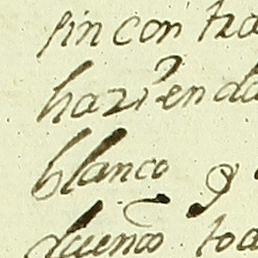 sin contra
hazienda
blanco y
dueño tod